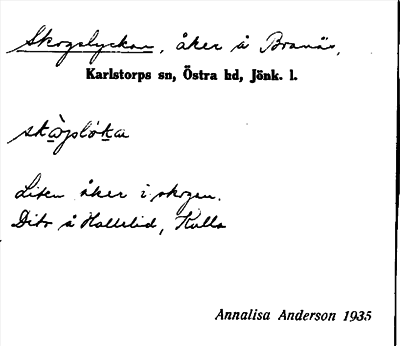 Skogslyckan, åker å Branäs,
Karlstorps sn, Östra hd, Jönk. l.
Liten åker i skogen.
Dito å Hallelid, Kulla
Annalisa Anderson 1935